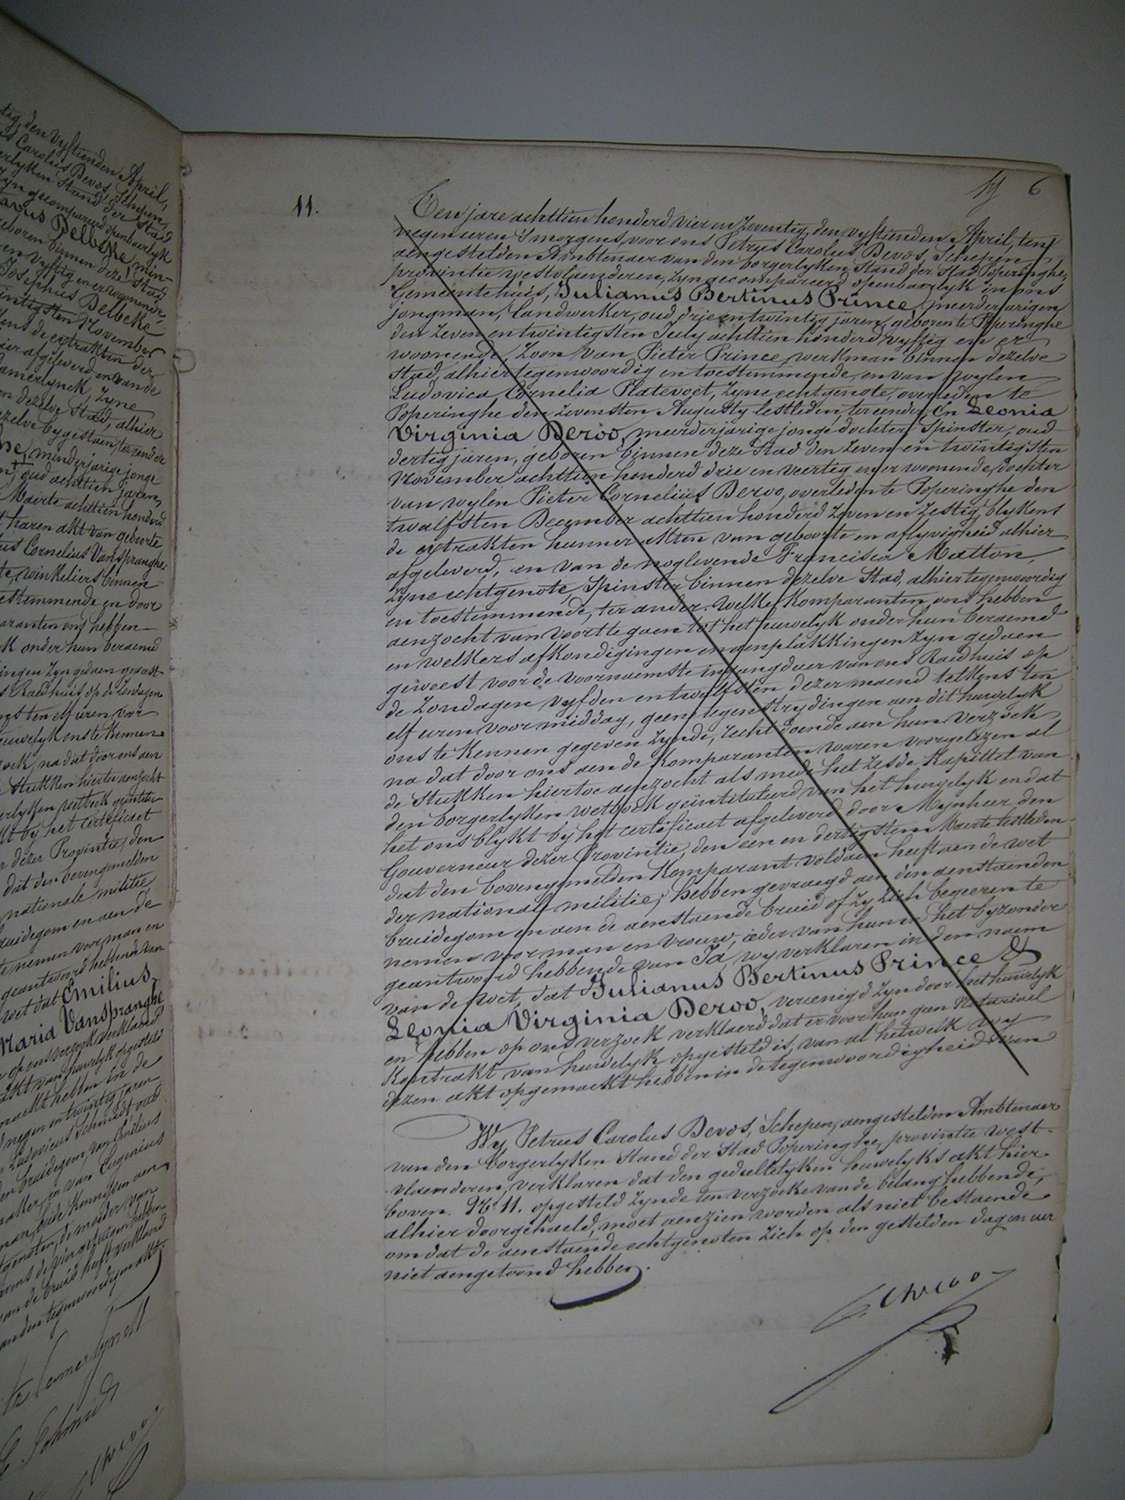 tig, den vyftienden April,
us Carolus Devos, Schepen,
erlyken Stand der Stad
zyn gecompareerd openbaarlyk
avus Delbeke, min-
geboren binnen deze Stad,
en vyftig en er woonende,
Josephus Delbeke
intigsten November
kens de extrakten der
ier afgeleverd en van de
Lamerlynck, zyne
en dezelve Stad, alhier
ezelve bygestaen, ter eender
he, minderjarige jonge
n, oud achttien jaren,
Maerte achttien honderd
t haren akt van geboorte
us Cornelius Vanspranghe
te, winkeliers binnen
estemmende en door
paranten ons hebben
k onder hun beraemd
ingen zyn gedaen geweest
s Raedhuis op de Zondagen
ns ten elf uren voor
euwelyk ons te kennen
oek, na dat door ons aen
e Stukken hiertoe aenzocht
erlyken wetboek geïntitu-
kt by het certificaet
r dezer Provintie, den
dat den bovengemelden
nationale militie
ruidegom en aen de
te nemen voor man en
geantwoord hebbende van
wet dat Emilius
Maria Vanspranghe
11.
6
Ten jare achttien honderd vier en zeventig, den vyftienden April, ten
negen uren 's morgens, voor ons Petrus Carolus Devos, Schepen,
aengestelden Ambtenaer van den borgerlyken Stand der Stad Poperinghe,
provintie Westvlaenderen, zyn gecompareerd openbaarlyk in ons
Gemeentehuis, Julianus Bertinus Prince, meerderjarigen
jongman, landwerker, oud drie en twintig jaren, geboren te Poperinghe
den zeven en twintigsten July achttien honderd vyftig en er
woonende, Zoon van Pieter Prince, werkman binnen dezelve
Stad, alhier tegenwoordig en toestemmende, en van wylen
Ludovica Cornelia Platevoet, zyne echtgenote, overleden te
Poperinghe den zevensten Augusty lestleden, ter eender, En Leonia
Virginia Deroo, meerderjarige jonge dochter, Spinster, oud
dertig jaren, geboren binnen deze Stad den zeven en twintigsten
November achttien honderd drie en veertig en er woonende, dochter
van wylen Pieter Cornelius Deroo, overleden te Poperinghe den
twalfsten December achttien honderd zeven en zestig, blykens
de extrakten hunner akten van geboorte en aflyvigheid alhier
afgeleverd, en van de noglevende Francisca Matton,
zyne echtgenote, Spinster binnen dezelve Stad, alhier tegenwoordig
en toestemmende, ter ander. Welke Komparanten ons hebben
aenzocht van voort te gaen tot het huwelyk onder hun beraemd
en welkers afkondigingen en aenplakkingen zyn gedaen
geweest voor de voornaemste ingangdeur van ons Raedhuis op
de Zondagen vyfden en twalfsten dezer maend telkens ten
elf uren voormiddag, geene tegenstrydingen aen dit huwelyk
ons te kennen gegeven zynde, recht doende aen hun verzoek
na dat door ons aen de Komparanten waren voorgelezen al
de Stukken hiertoe aenzocht als mede het zesde Kapittel van
den borgerlyken wetboek geïntituleerd van het huwelyk en dat
het ons blykt by het certificaet afgeleverd door Mynheer den
Gouverneur dezer Provintie, den een en dertigsten Maerte lestleden
dat den bovengemelden Komparant voldaen heeft aen de wet
der nationale militie; hebben gevraegd aen den aenstaenden
bruidegom en aen de aenstaende bruid of zy zich begeeren te
nemen voor man en vrouw, ieder van hunne het byzonder
geantwoord hebbende van Ja, wy verklaren in den naem
van de wet, dat Julianus Bertinus Prince &
Leonia Virginia Deroo, vereenigd zyn door het huwelyk
en hebben op ons verzoek verklaerd dat er voor hun geen Notariael
Kontrakt van huwelyk opgesteld is, van al hetwelk wy
dezen akt opgemaekt hebben in de tegenwoordigheid van
Wy Petrus Carolus Devos, Schepen, aengestelden Ambtenaer
van den Borgerlyken Stand der Stad Poperinghe, provintie West-
vlaenderen, verklaren dat den gedeeltelyken huwelyks akt hier-
boven No 11. opgesteld zynde ten verzoeke van de belanghebbende,
alhier doorgehaeld, moet aenzien worden als niet bestaende
omdat de aenstaende echtgenoten zich op den gestelden dag en uer
niet aengetoond hebben.